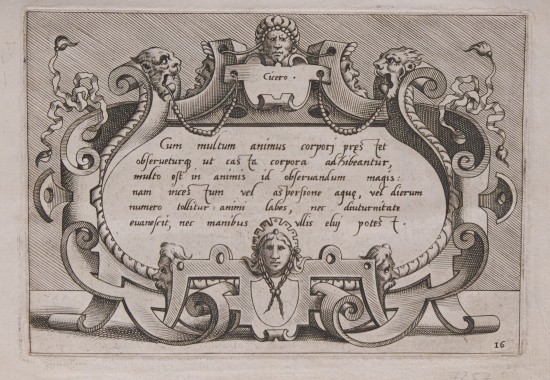 Cicero.
Cum multum animus corpori pręstet
observeturq ut casta corpora adhibeantur,
multo est in animis id observandum magis:
nam incestum vel aspersione aquę, vel dierum
numero tollitur: animi labes, nec diuturnitate
evanescit, nec manibus ullis elui potest.
16